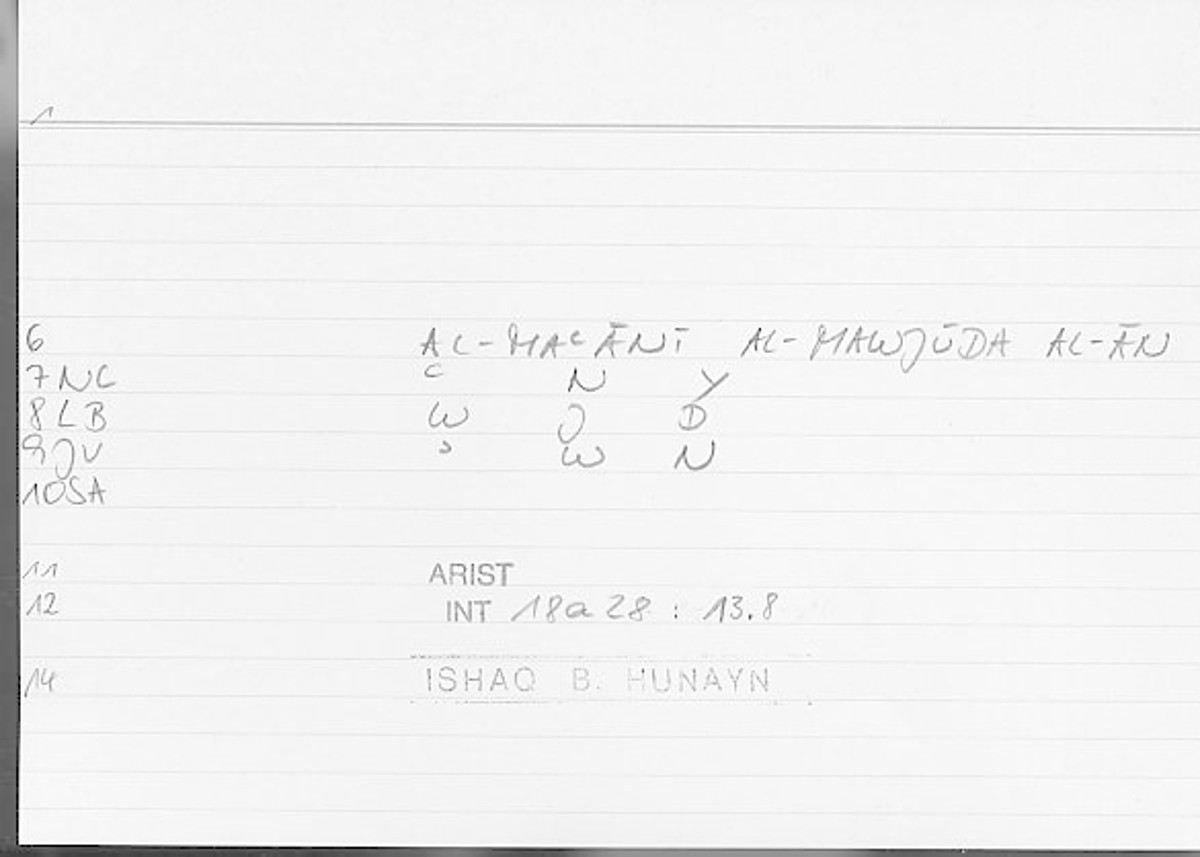 1
6 AL-MAᶜĀNĪ AL-MAWJŪDA AL-ĀN
7 NC ᶜ N Y
8 LB W J D
9 JV ʾ W N
10 SA
11 ARIST
12 INT 18a28 : 13.8
14 ISHAQ B. HUNAYN